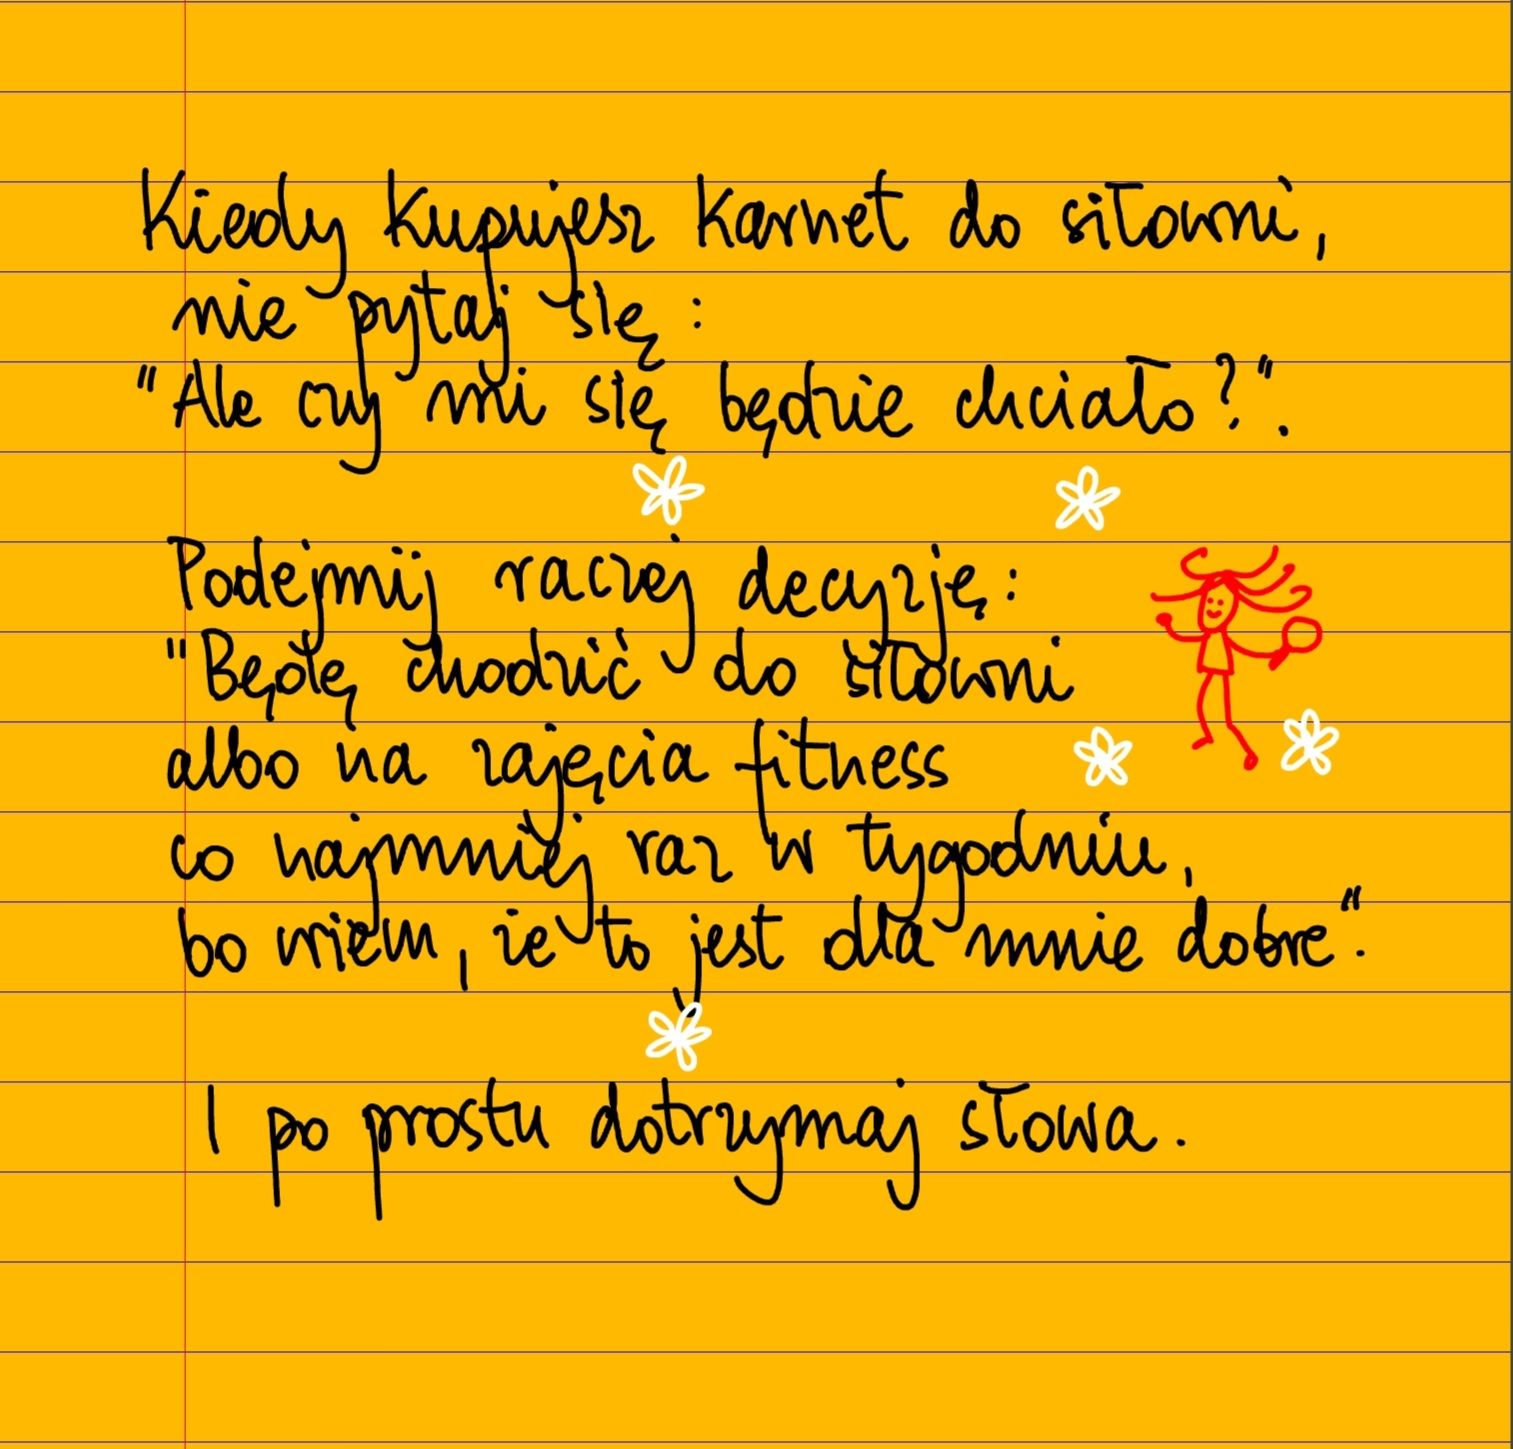 Kiedy kupujesz karnet do siłowni,
nie pytaj się:
"Ale czy mi się będzie chciało?".
Podejmij raczej decyzję:
"Będę chodzić do siłowni
albo na zajęcia fitness
co najmniej raz w tygodniu,
bo wiem, że to jest dla mnie dobre".
I po prostu dotrzymaj słowa.